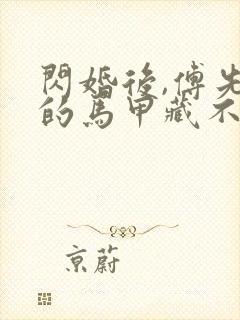 閃婚後,傅先
的馬甲藏不
京蔚